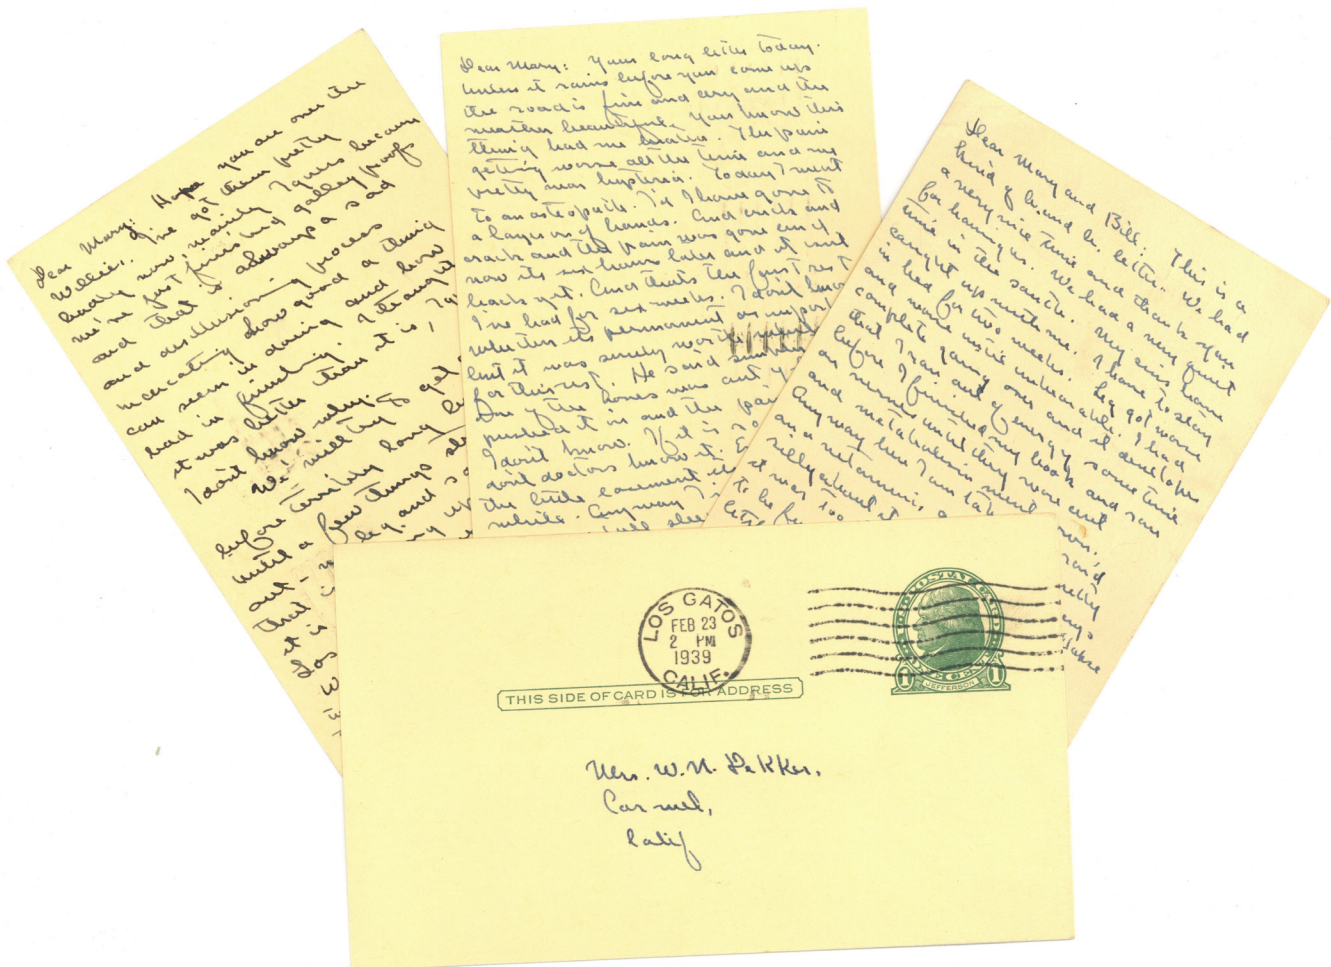 Dear Mary: Hope you are over the
Willies. I've got them pretty
badly now, mainly I guess because
we've just finished galley proofs
and that is always a sad
and disillusioning process
indicating how good a thing
can seem in doing and how
bad in finishing. I thought
it was better than it is,
I don't know why.
We will try to get
before terribly long
until a few things
out
that
it is
Los
Dear Mary: Your long letter today.
Unless it rains before you come up
the road is fine and dry and the
weather beautiful. You know this
thing had me beaten. The pain
getting worse all the time and me
pretty near hysteria. Today I went
to an osteopath. I'd have gone to
a layer on of hands. And crick and
crack and the pain was gone and
now its six hours later and it isn't
back yet. And thats the first rest
I've had for six weeks. I don't know
whether its permanent or
but it was surely worth
for this rest. He said
One of the bones was out
pushed it in and the pain
I don't know. If it is so
don't doctors know it.
the little basement
while. Anyway I
Dear Mary and Bill: This is a
kind of br. and br. letter. We had
a very nice time and thank you
for having us. We had a very quiet
time in the south. My sins have
caught up with me. I have to stay
in bed for two weeks. Leg got worse
and more unbearable. I had
complete going over and it develops
that I ran out of energy some time
before I finished my book and ran
on nerves until they wore out
and metabolism went down.
Anyway here I am
on a
silly about it
it was too
to be
THIS SIDE OF CARD IS FOR ADDRESS
LOS GATOS
FEB 23
2 PM
1939
CALIF.
JEFFERSON
1 1
Mrs. W. N. Dekker.
Carmel,
Calif